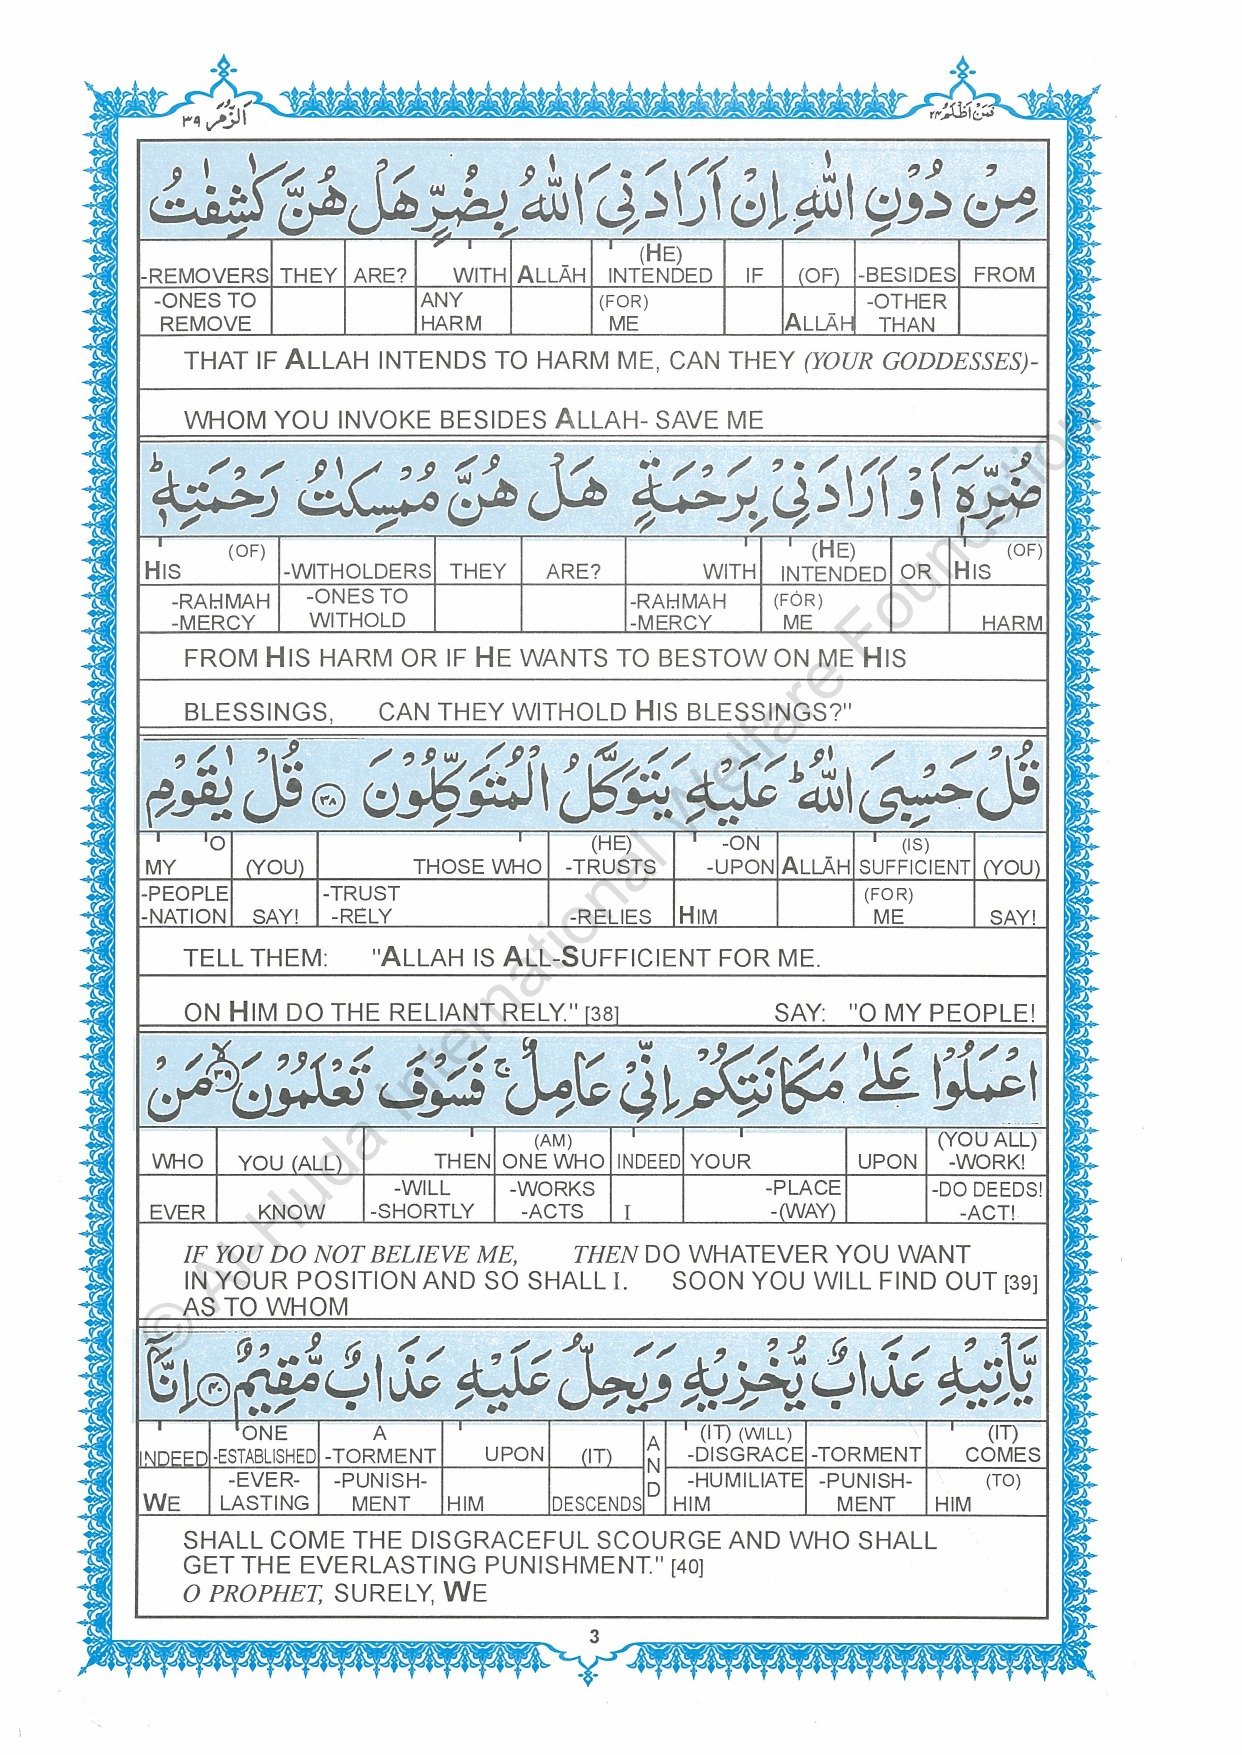 اَلزُّمَر ٣٩
فَمَنْ اَظْلَمُ ٢٤
مِنْ دُوْنِ اللّٰهِ اِنْ اَرَادَنِیَ اللّٰهُ بِضُرٍّ هَلْ هُنَّ كٰشِفٰتُ
(HE)
-REMOVERS THEY ARE? WITH ALLĀH INTENDED IF (OF) -BESIDES FROM
-ONES TO ANY (FOR) -OTHER
REMOVE HARM ME ALLĀH THAN
THAT IF ALLAH INTENDS TO HARM ME, CAN THEY (YOUR GODDESSES)-
WHOM YOU INVOKE BESIDES ALLAH- SAVE ME
ضُرِّهٖۤ اَوْ اَرَادَنِیْ بِرَحْمَةٍ هَلْ هُنَّ مُمْسِكٰتُ رَحْمَتِهٖ ؕ
(OF) (HE) (OF)
HIS -WITHOLDERS THEY ARE? WITH INTENDED OR HIS
-RAHMAH -ONES TO -RAHMAH (FOR)
-MERCY WITHOLD -MERCY ME HARM
FROM HIS HARM OR IF HE WANTS TO BESTOW ON ME HIS
BLESSINGS, CAN THEY WITHOLD HIS BLESSINGS?"
قُلْ حَسْبِیَ اللّٰهُ ؕ عَلَیْهِ یَتَوَكَّلُ الْمُتَوَكِّلُوْنَ ٣٨ قُلْ یٰقَوْمِ
O (HE) -ON (IS)
MY (YOU) THOSE WHO -TRUSTS -UPON ALLĀH SUFFICIENT (YOU)
-PEOPLE -TRUST (FOR)
-NATION SAY! -RELY -RELIES HIM ME SAY!
TELL THEM: "ALLAH IS ALL-SUFFICIENT FOR ME.
ON HIM DO THE RELIANT RELY." [38] SAY: "O MY PEOPLE!
اعْمَلُوْا عَلٰی مَكَانَتِكُمْ اِنِّیْ عَامِلٌ ۚ فَسَوْفَ تَعْلَمُوْنَ ٣٩ ۙ مَنْ
(AM) (YOU ALL)
WHO YOU (ALL) THEN ONE WHO INDEED YOUR UPON -WORK!
-WILL -WORKS -PLACE -DO DEEDS!
EVER KNOW -SHORTLY -ACTS I -(WAY) -ACT!
IF YOU DO NOT BELIEVE ME, THEN DO WHATEVER YOU WANT
IN YOUR POSITION AND SO SHALL I. SOON YOU WILL FIND OUT [39]
AS TO WHOM
یَّاْتِیْهِ عَذَابٌ یُّخْزِیْهِ وَیَحِلُّ عَلَیْهِ عَذَابٌ مُّقِیْمٌ ٤٠ اِنَّاۤ
ONE A (IT) (WILL) (IT)
INDEED -ESTABLISHED -TORMENT UPON (IT) AND -DISGRACE -TORMENT COMES
-EVER- -PUNISH- -HUMILIATE -PUNISH- (TO)
WE LASTING MENT HIM DESCENDS HIM MENT HIM
SHALL COME THE DISGRACEFUL SCOURGE AND WHO SHALL
GET THE EVERLASTING PUNISHMENT." [40]
O PROPHET, SURELY, WE
3
© Al-Huda International Welfare Foundation